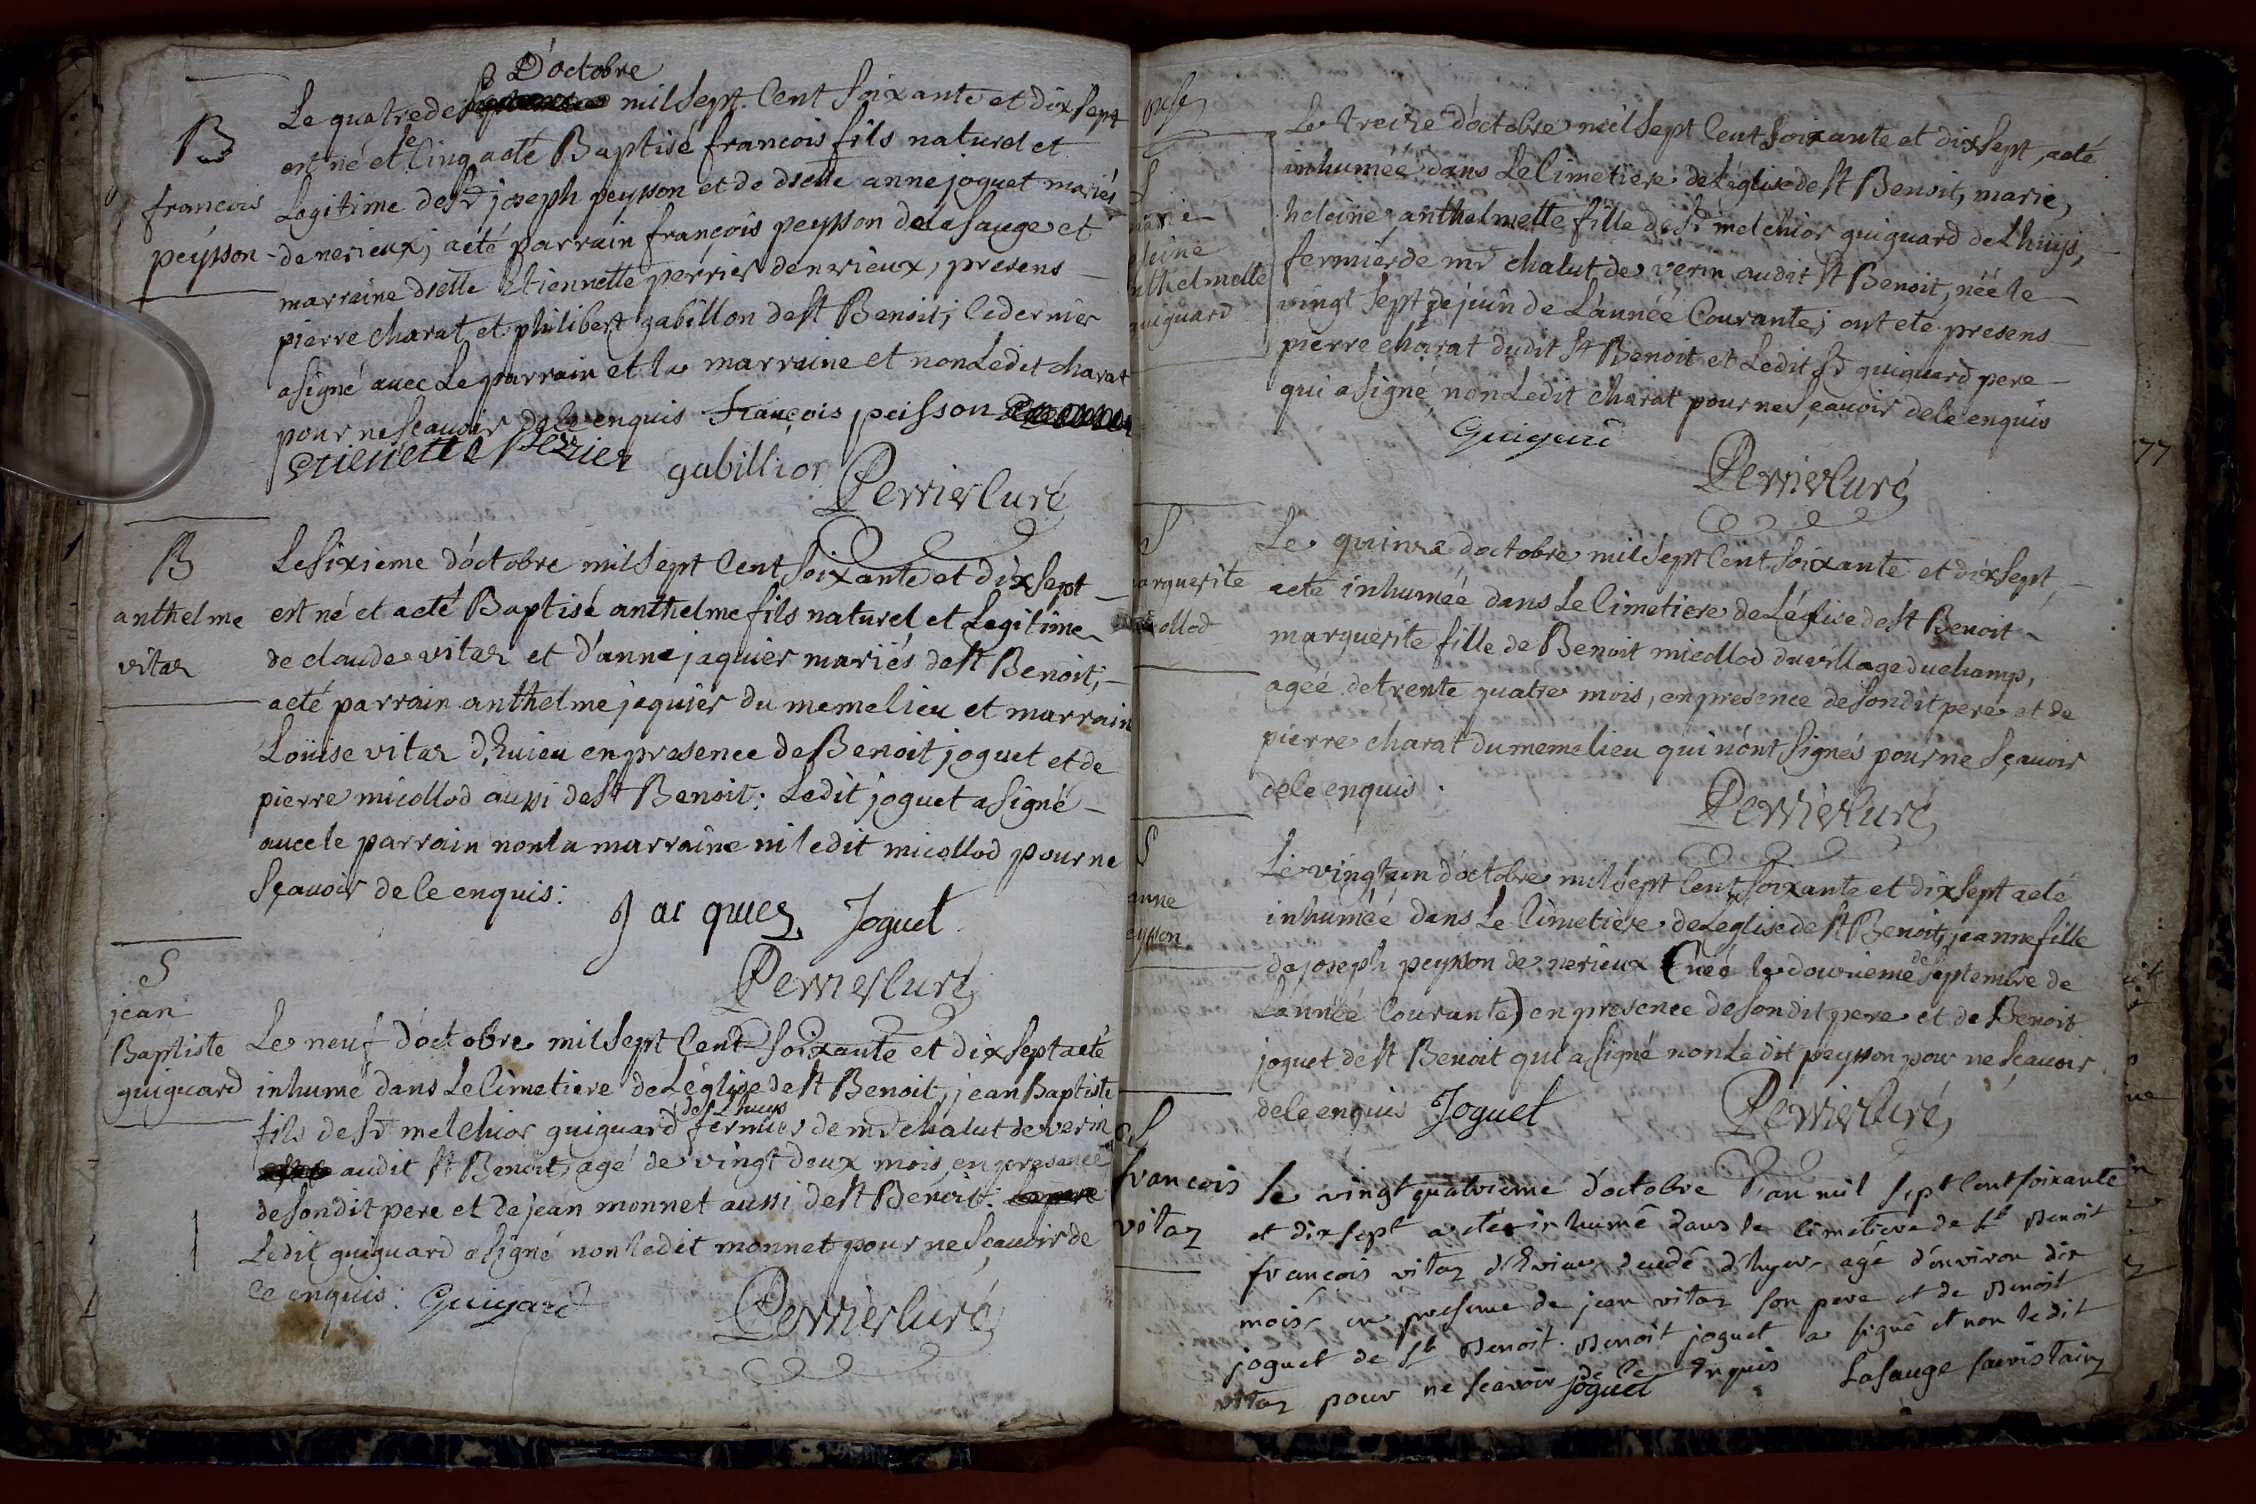 D'octobre
Le quatre de mil sept Cent soixante et dix sept
B
est né et le Cinq a eté Baptisé francois fils naturel et
francois
Legitime de Sr joseph peysson et de dselle anne joguet mariés
peysson
de nerieux; a eté parrain françois peysson de la sauge et
marraine dselle Etiennette perrier de nerieux, presens
pierre charat et philibert gabillon de st Benoit; le dernier
a signé avec Le parrain et la marraine et non Ledit charat
pour ne sçavoir de le enquis francois peisson
Etienette Perrier gabillior Perrier Curé
B
Le sixieme d'octobre mil sept Cent soixante et dix sept
anthelme
est né et a eté Baptisé anthelme fils naturel et Legitime
vitaz
de claude vitaz et d'anne jaquier mariés de st Benoit;
a eté parrain anthelme jaquier du meme lieu et marrain
Loüise vitaz d'Evieu en presence de Benoit joguet et de
pierre micollod aussi de st Benoit; Ledit joguet a signé
avec le parrain non la marraine ni ledit micollod pour ne
sçavoir de le enquis:
Jacquier Joguet
Perrier Curé
S
jean
Baptiste
guiguard
Le neuf d'octobre mil sept Cent soixante et dix sept a eté
inhumé dans Le Cimetiere de L'église de st Benoit, jean Baptiste
de Lhuys
fils de Sr melchior guiguard fermier de mr chalut de verin
audit st Benoit, agé de vingt deux mois, en presence
de son dit pere et de jean monnet aussi de st Benoit:
Ledit guiguard a signé non ledit monnet pour ne sçavoir de
ce enquis: Guigard Perrier Curé
Le treize d'octobre mil sept Cent soixante et dix sept, a eté
S
inhumée dans Le Cimetiere de L'église de st Benoit, marie,
heleine anthelmette fille de Sr melchior guiguard de Lhuys,
eleine
fermier de mr chalut de verin audit st Benoit, née le
nthelmette
vingt sept de juin de L'année Courante; ont eté presens
uiguard
pierre charat dudit st Benoit et Ledit Sr guiguard pere
qui a signé non Ledit charat pour ne sçavoir de le enquis
Guiguard
77
Perrier Curé
S
Le quinze d'octobre mil sept Cent soixante et dix sept,
arguerite
a eté inhumée dans Le Cimetiere de L'église de st Benoit
ollod
marguerite fille de Benoit micollod du village du champ,
ageé de trente quatre mois, en presence de son dit pere et de
pierre charat du meme lieu qui n'ont signés pour ne sçavoir
de le enquis.
Perrier Curé
S
Le vingt un d'octobre mil sept Cent soixante et dix sept a eté
anne
inhumée dans Le Cimetiere de L'église de st Benoit, jeanne fille
eysson
de joseph peysson de nerieux (née le douzieme de septembre de
L'année Courante) en presence de son dit pere et de Benoit
joguet de st Benoit qui a signé non Le dit peysson pour ne sçavoir
de le enquis Joguet Perrier Curé
S
francois
Le vingt quatrieme d'octobre l'an mil sept Cent soixante
vitaz
et dix sept a eté inhumé dans le Cimetiere de st Benoit
francois vitaz d'Evieu agé d'environ dix
mois en presence de jean vitaz son pere et de Benoit
joguet de st Benoit. Benoit joguet a signé et non ledit
vitaz pour ne scavoir de le Enquis
Joguet Lasauge